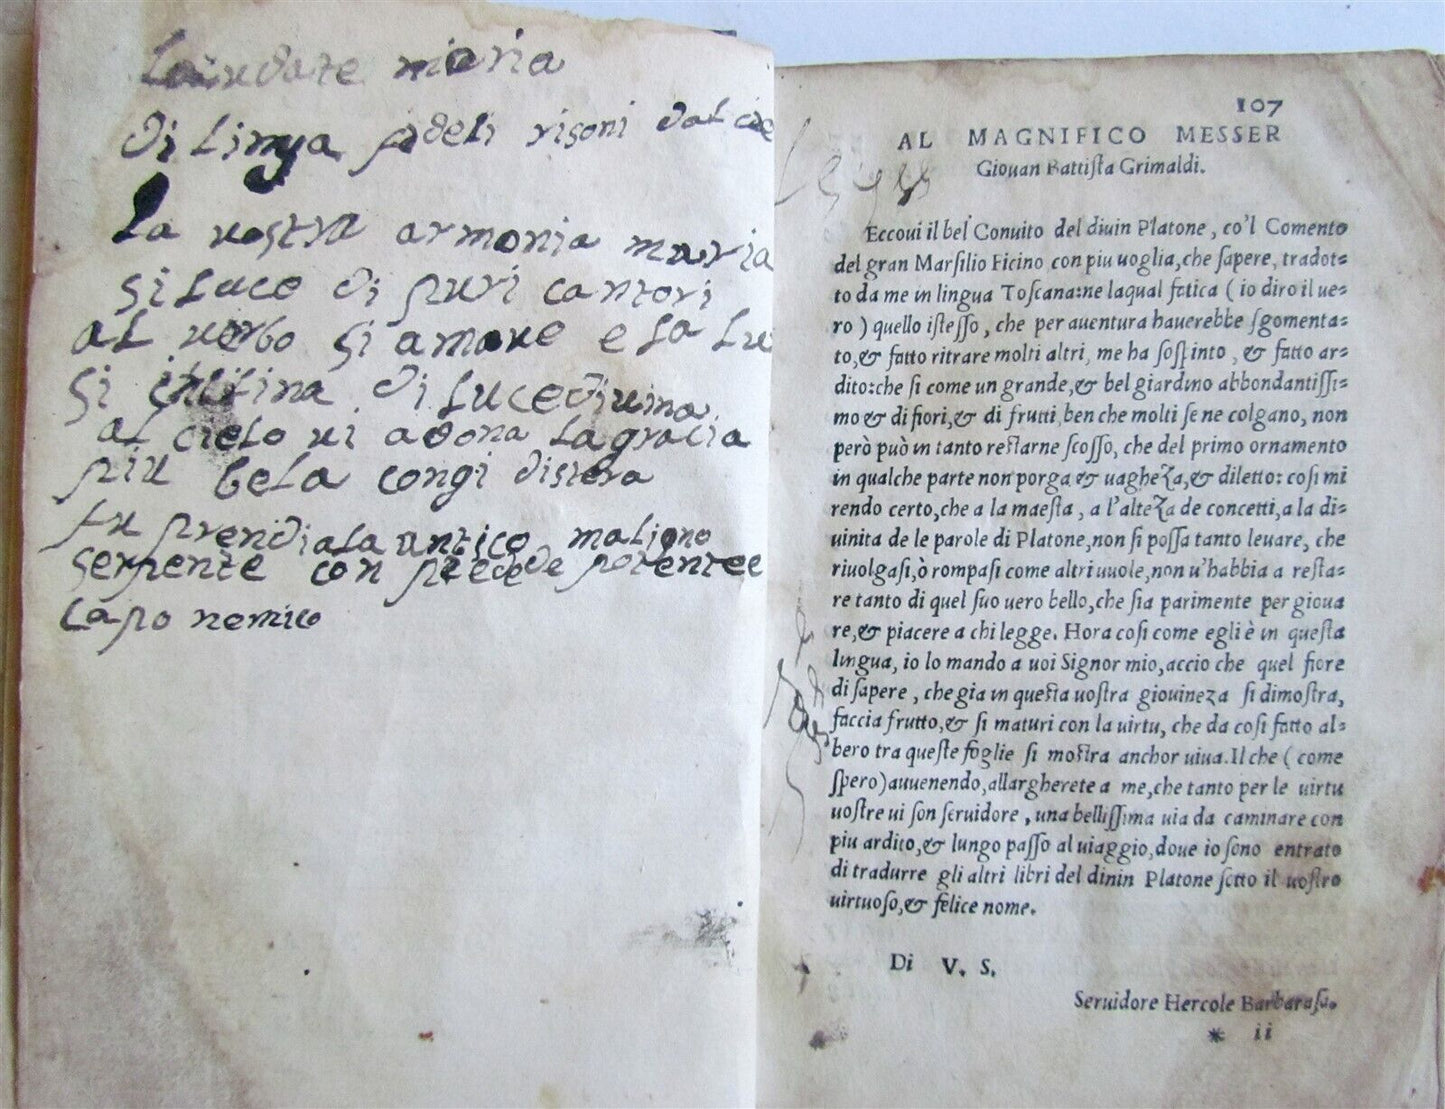 Laudate maria
di linga fideli risoni dal cie
La vostra armonia maria
si luco di puri cantori
al verbo si amaue e la lu
si di luce diuina
al cielo ui adona la gracia
piu bela congi distera
tu prendi la antico maligno
serpente con piede potente e
capo nemico
107
AL MAGNIFICO MESSER
Giouan Battiſta Grimaldi.
Eccoui il bel Conuito del diuin Platone, co'l Comento
del gran Marſilio Ficino con piu uoglia, che ſapere, tradot=
to da me in lingua Toſcana: ne laqual fatica ( io diro il ue=
ro ) quello iſteſſo, che per auentura hauerebbe ſgomenta=
to, & fatto ritrare molti altri, me ha ſoſpinto, & fatto ar=
dito: che ſi come un grande, & bel giardino abbondantiſſi=
mo & di fiori, & di frutti, ben che molti ſe ne colgano, non
però può in tanto reſtarne ſcoſſo, che del primo ornamento
in qualche parte non porga & uagheza, & diletto: coſi mi
rendo certo, che a la maeſta, a l'alteza de concetti, a la di=
uinita de le parole di Platone, non ſi poſſa tanto leuare, che
riuolgaſi, ò rompaſi come altri uuole, non u'habbia a reſta=
re tanto di quel ſuo uero bello, che ſia parimente per gioua
re, & piacere a chi legge. Hora coſi come egli è in queſta
lingua, io lo mando a uoi Signor mio, accio che quel fiore
di ſapere, che gia in queſta uoſtra giouineza ſi dimoſtra,
faccia frutto, & ſi maturi con la uirtu, che da coſi fatto al=
bero tra queſte foglie ſi moſtra anchor uiua. Il che ( come
ſpero) auuenendo, allargherete a me, che tanto per le uirtu
uoſtre ui ſon ſeruidore, una belliſſima uia da caminare con
piu ardito, & lungo paſſo al uiaggio, doue io ſono entrato
di tradurre gli altri libri del diuin Platone ſotto il uoſtro
uirtuoſo, & felice nome.
Di V. S.
Seruidore Hercole Barbaraſa.
* ii